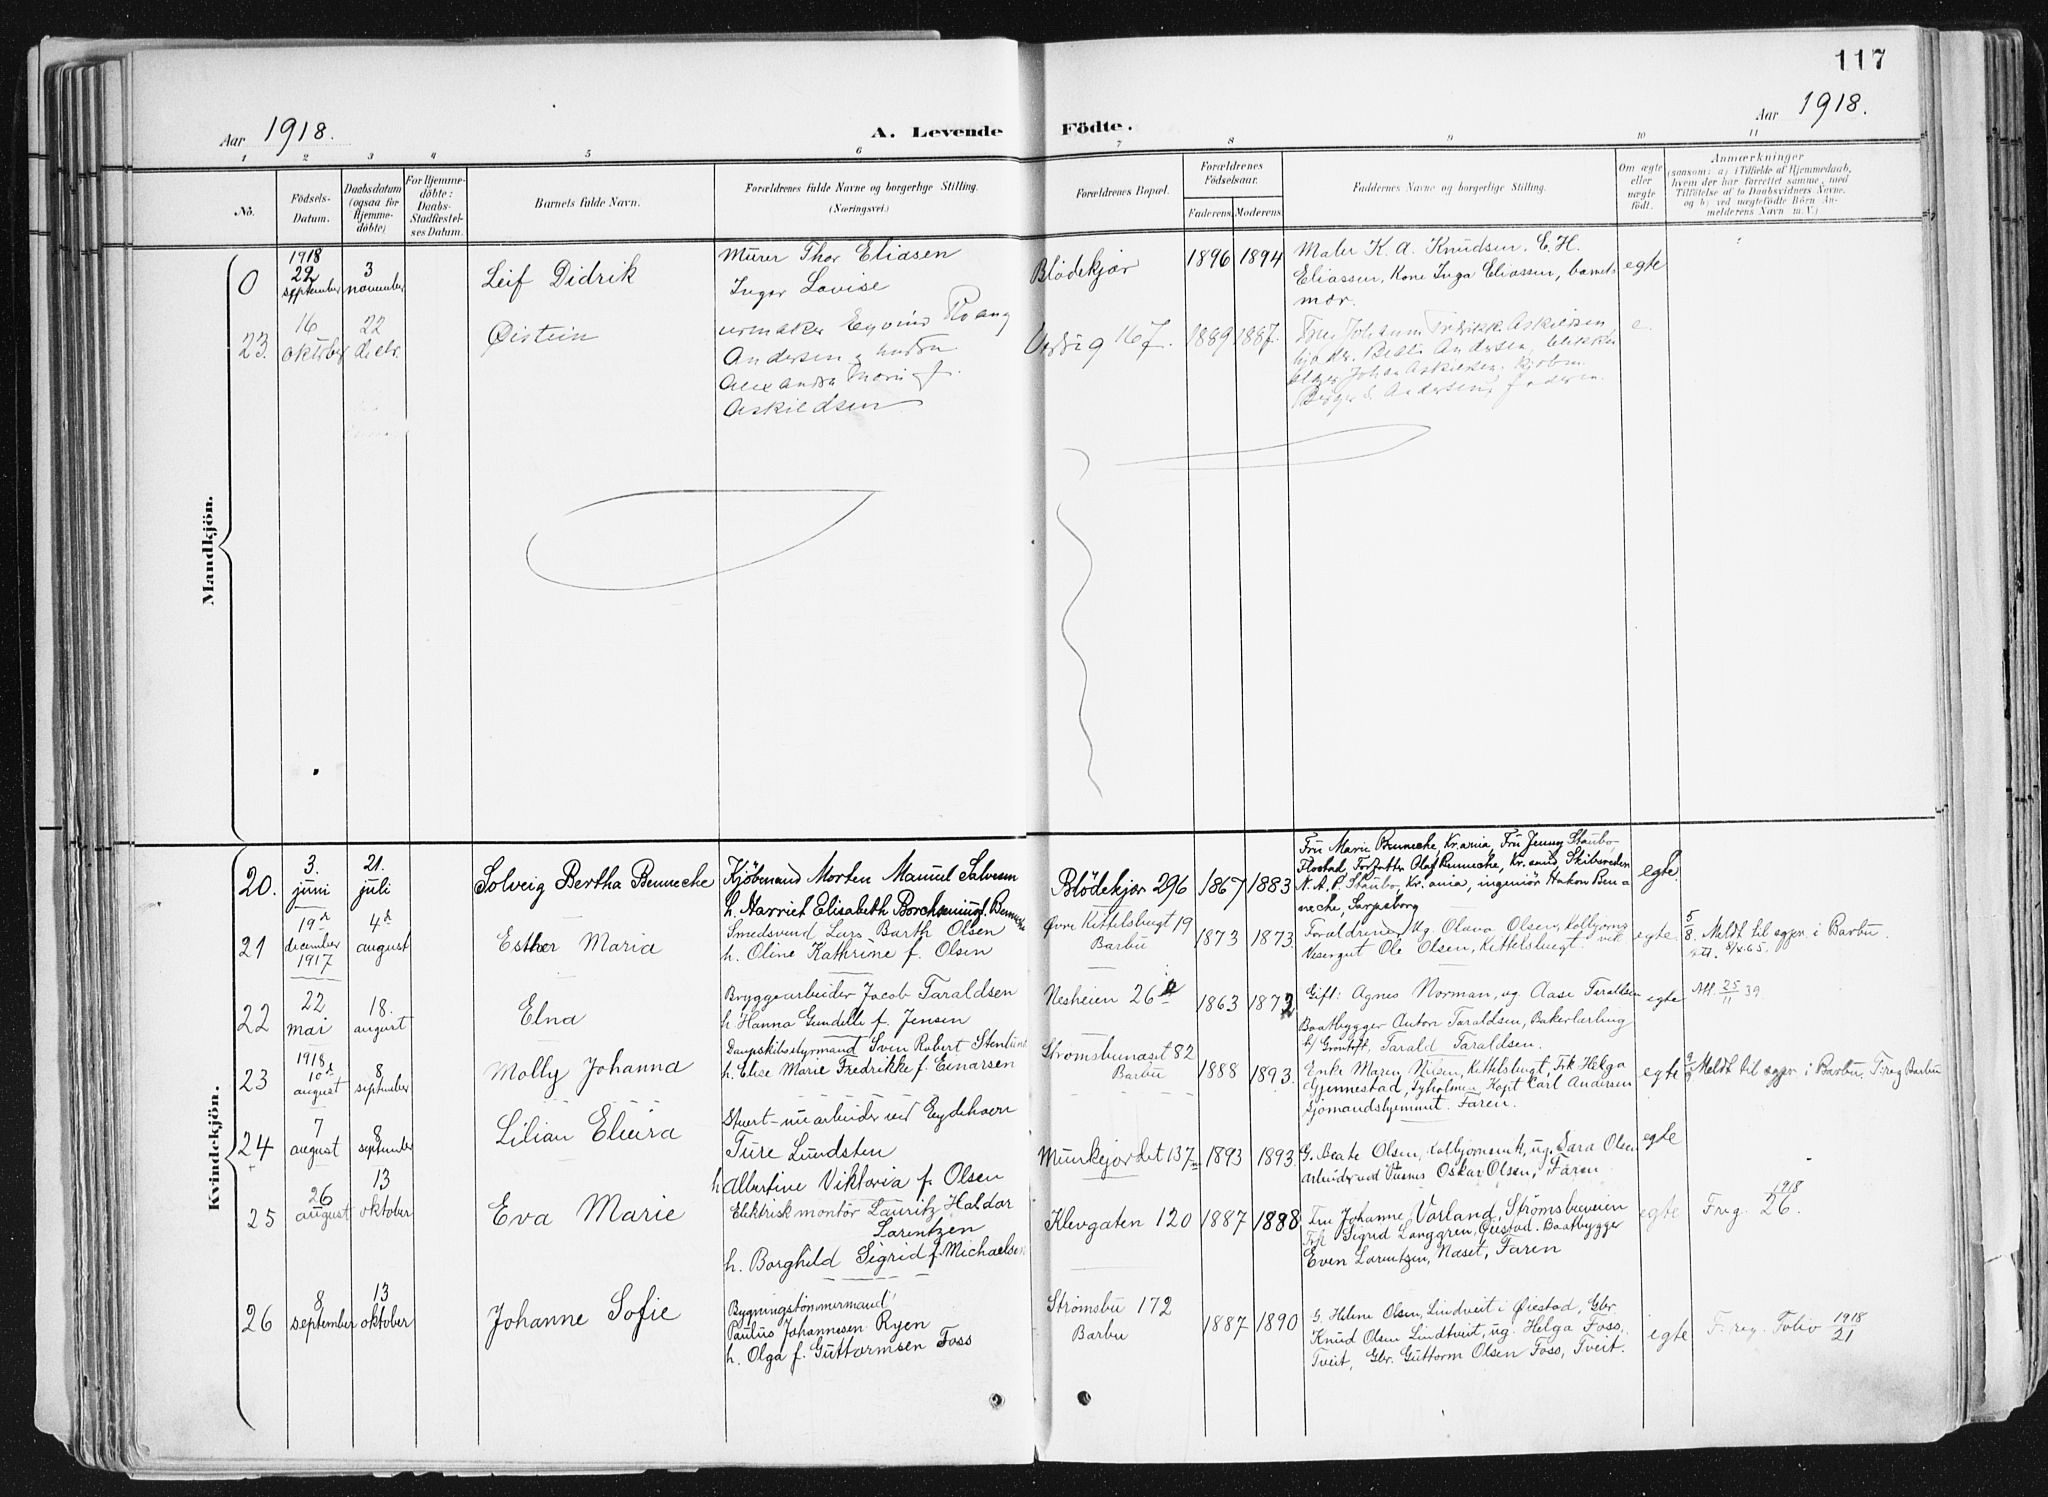 117
Aar 1918.
A. Levende Födte.
Aar 1918.
1 2 3 4 5 6 7 8 9 10 11
No.
Födsels-
Datum.
Daabsdatum
(ogsaa for
Hjemme-
döbte)
For Hjemme-
döbte:
Daabs-
Stadfæstel-
ses Datum.
Barnets fulde Navn.
Forældrenes fulde Navne og borgerlige Stilling.
(Næringsvei.)
Forældrenes Bopæl.
Forældrenes
Födselsaar.
Faderens Moderens
Faddernes Navne og borgerlige Stilling.
Om ægte
eller
uægte
födt.
Anmærkninger
(saasom: a) i Tilfælde af Hjemmedaab,
hvem der har forrettet samme, med
Tilföielse af to Daabsvidners Navne.
og b) ved uægtefödte Börn An-
melderens Navn m. V.)
Mandkjön.
0
1918
22
september
3
november
Leif Didrik
Murer Thor Eliasen
Inger Lovise
Blødekjær
1896 1894
Maler K. A. Knudsen, E. H.
Eliassen, Kone Inga Eliassen, barnets
mor.
egte
23.
16
oktober
22
decbr.
Øistein
urmaker Eyvind
Andersen og hustru
Alexandra Marie f.
Askildsen
167.
1889 1887
Fru Johanne Fredrikke Askildsen,
Andersen,
Johan Askildsen,
Birger Andersen, faderen.
e.
Kvindekjön.
20.
3.
juni
21.
juli
Solveig Bertha Bennecke
Kjöbmand Morten Manuel Salvesen
h. Harriet Elisabeth Borchsenius f. Bennecke
Blödekjær 296
1867 1883
Fru Marie Bennecke, Kr.ania, Fru Jenny Staubo,
Flostad, Forfatter Olaf Bennecke, Kr.sand, Skibsreder
N. A. P. Staubo, Kr.ania, ingeniør Hakon Ben-
necke, Sarpsborg
egte.
21
19de
december
1917
4de
august
Esther Maria
Smedsvend Lars Barth Olsen
h. Oline Kathrine f. Olsen
Øvre Kittelsbugt 19
Barbu
1873 1873.
Forældrene, Ug. Olava Olsen, Kolbjørns-
vik
Visergut Ole Olsen, Kittelsbugt.
egte.
5/8. Meldt til sogpr. i Barbu.
att. 8/4 65.
22
22
mai
18.
august
Elna
Bryggearbeider Jacob Taraldsen
h. Hanna Gundelle f. Jensen
Nesheien 26
1863 1872
Gift: Agnes Norman, ug. Aase Taraldsen
Baatbygger Anton Taraldsen, Bakerlærling
Tarald Taraldsen.
egte
Att. 25/11 39
23
1918
10de
august
8
september
Molly Johanna
Dampskibsstyrmand Sven Robert Stenlund
h. Elise Marie Fredrikke f. Einarsen
Strømsbunæset 82
Barbu
1888 1893.
Enke Maren Nilsen, Kittelsbugt, Frk Helga
Gjennestad, Tyholmen, Kapt Carl Andersen
Sjømandshjemmet. Faren.
egte
9/9 Meldt til sogpr. i Barbu. F.reg Barbu
24
7
august
8
september
Lilian Elvira
arbeider ved Eydehavn
Ture Lundsten
h Albertine Viktoria f. Olsen
Munkejordet 137
1893 1893
G. Beate Olsen, Kolbjørnsvik, ug. Sara Olsen
arbeider ved Vusnes Oskar Olsen, Faren.
egte
25
26
august
13
oktober
Eva Marie
Elektrisk montør Lauritz Haldor
Larentzen
h. Borghild Sigrid f. Michaelsen
Klevgaten 120
1887 1888
Fru Johanne Vorland, Strømsbuveien
Frk Sigrid Langgren, Øiestad. Baatbygger
Even Larentzen, Næset, Faren
egte
F.reg. 1918/26.
26
8
september
13
oktober
Johanne Sofie
Bygningstømmermand
Paulus Johannesen Ryen
h. Olga f. Guttormsen Foss
Strømsbu 172
Barbu
1887 1890
G. Helene Olsen, Lindtveit i Øiestad, Gbr.
Knud Olsen Lindtveit, ug. Helga Foss,
Tveit, Gbr. Guttorm Olsen Foss, Tveit.
egte
F.reg. Folio 1918/21